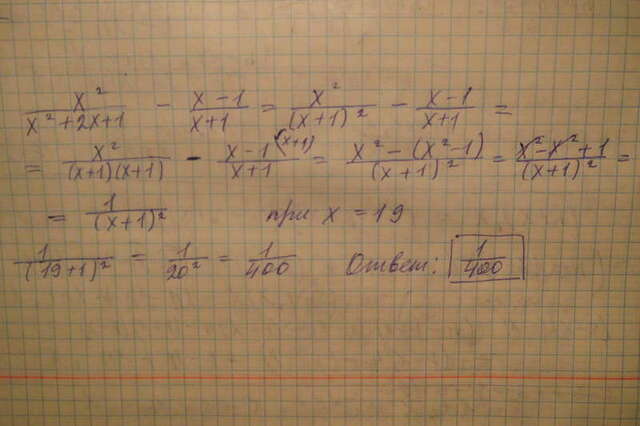 x²/(x²+2x+1) - (x-1)/(x+1) = x²/(x+1)² - (x-1)/(x+1) =
= x²/((x+1)(x+1)) - (x-1)/(x+1) (x+1) = (x²-(x²-1))/(x+1)² = (x²-x²+1)/(x+1)² =
= 1/(x+1)² при x=19
1/(19+1)² = 1/20² = 1/400 Ответ: 1/400